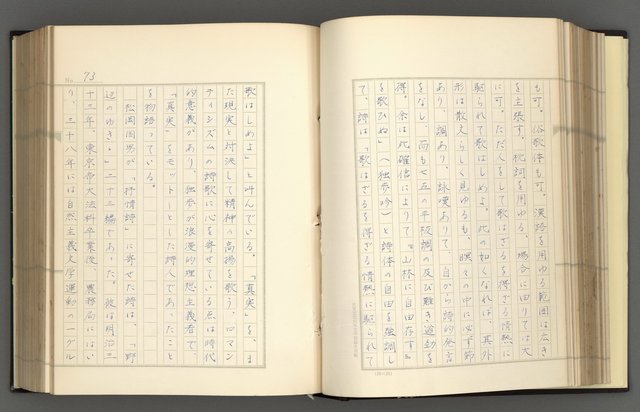 も可。俗歌体も可。漢語を用ゆる範囲は広き
を主張す。枕詞を用ゆる、場合に由りては大
に可。ただ人をして歌はざるを得ざる情熱に
駆られて歌はしめよ。此の如くなれば、其外
形は散文らしく見ゆるも、瞑々の中に必ず節
あり、調あり、詠嘆ありて、自から詩的発言
をなし、而も七五の平板調の及び難き遒勁を
得。余は此確信によりて『山林に自由存す』
を歌ひぬ」(独歩吟)と詩体の自由を強調し
て、詩は「歌はざるを得ざる情熱に駆られて
No. 73
歌はしめよ」と叫んでいる。「真実」を、ま
た現実と対決して精神の高揚を歌う、ロマン
ティシズムの詩歌に心を寄せている点は時代
的意義があり、独歩が浪漫的理想主義者で、
「真実」をモットーとした詩人であったこと
を物語っている。
松岡国男が「抒情詩」に寄せた詩は、「野
辺のゆきゝ」二十三編であった。彼は明治三
十三年、東京帝大法科卒業後、農務局にはい
り、三十八年には自然主義文学運動の一グル